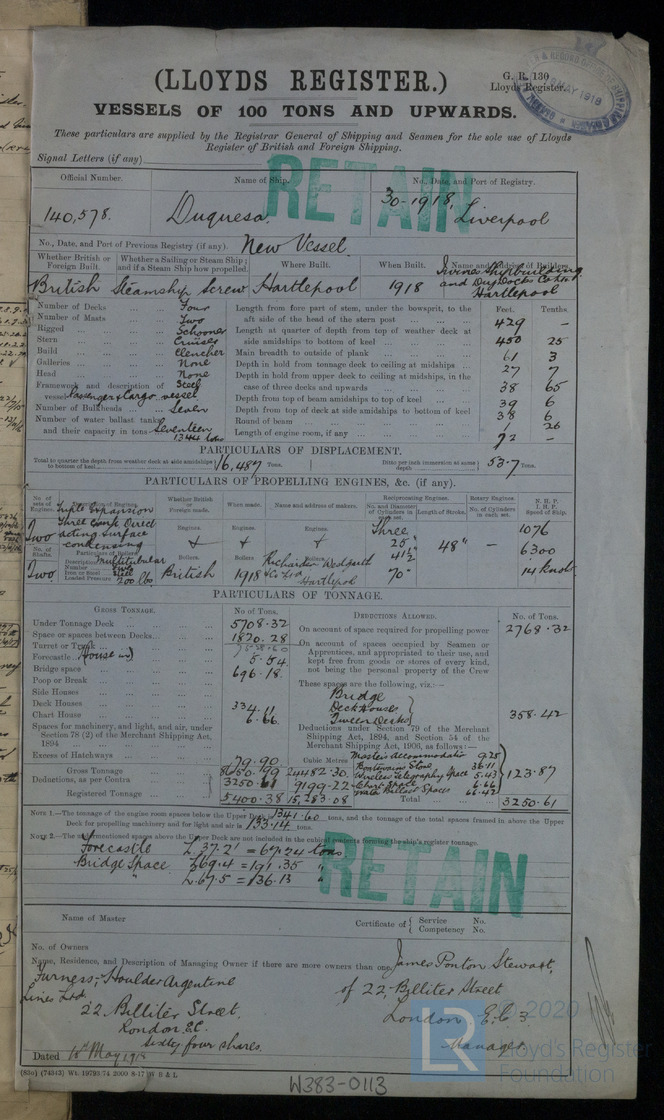 (LLOYDS REGISTER.)
G. R. 130
Lloyds Register.
MAY 1918
VESSELS OF 100 TONS AND UPWARDS.
These particulars are supplied by the Registrar General of Shipping and Seamen for the sole use of Lloyds
Register of British and Foreign Shipping.
Signal Letters (if any)
RETAIN
Official Number. Name of Ship. No., Date, and Port of Registry.
140,578. Duquesa 30-1918, Liverpool
No., Date, and Port of Previous Registry (if any). New Vessel.
Whether British or Foreign Built. Whether a Sailing or Steam Ship; and if a Steam Ship how propelled. Where Built. When Built. Name and Address of Builders.
British Steamship Screw Hartlepool 1918 Irvines Shipbuilding and Dry Docks Co Ltd Hartlepool
Number of Decks Four
Number of Masts Two
Rigged Schooner
Stern Cruiser
Build Clencher
Galleries None
Head None
Framework and description of vessel Steel Passenger & Cargo vessel
Number of Bulkheads Seven
Number of water ballast tanks and their capacity in tons Seventeen 1344 tons
Feet. Tenths.
Length from fore part of stem, under the bowsprit, to the aft side of the head of the stern post 429 —
Length at quarter of depth from top of weather deck at side amidships to bottom of keel 450 25
Main breadth to outside of plank 61 3
Depth in hold from tonnage deck to ceiling at midships 27 7
Depth in hold from upper deck to ceiling at midships, in the case of three decks and upwards 38 65
Depth from top of beam amidships to top of keel 39 6
Depth from top of deck at side amidships to bottom of keel 38 6
Round of beam 1 26
Length of engine room, if any 72 —
PARTICULARS OF DISPLACEMENT.
Total to quarter the depth from weather deck at side amidships to bottom of keel 16,487 Tons. Ditto per inch immersion at same depth 53.7 Tons.
PARTICULARS OF PROPELLING ENGINES, &c. (if any).
No. of sets of Engines. Description of Engines. Whether British or Foreign made. When made. Name and address of makers. Reciprocating Engines. Rotary Engines. N. H. P. I. H. P. Speed of Ship.
No. and Diameter of Cylinders in each set. Length of Stroke. No. of Cylinders in each set.
Two Triple Expansion Three Crank Direct acting Surface condensing
Engines. Engines. Engines.
Three 25" 41½" 70" 48" — 1076 6300 14 knots
No. of Shafts. Particulars of Boilers.
Two Description Multitubular
Number
Iron or Steel Steel
Loaded Pressure 200 lbs
Boilers. British Boilers. 1918 Boilers. Richardson Westgarth & Co Ltd Hartlepool
PARTICULARS OF TONNAGE.
GROSS TONNAGE. No of Tons.
Under Tonnage Deck 5708.32
Space or spaces between Decks 1820.28
Turret or Trunk
Forecastle 5.54
Bridge space 696.18
Poop or Break
Side Houses
Deck Houses 334.11
Chart House 6.66
Spaces for machinery, and light, and air, under Section 78 (2) of the Merchant Shipping Act, 1894
Excess of Hatchways 79.90
Cubic Metres
Gross Tonnage 8650.99 24482.30
Deductions, as per Contra 3250.61 9199.22
Registered Tonnage 5400.38 15,283.08
DEDUCTIONS ALLOWED. No. of Tons.
On account of space required for propelling power 2768.32
On account of spaces occupied by Seamen or Apprentices, and appropriated to their use, and kept free from goods or stores of every kind, not being the personal property of the Crew
These spaces are the following, viz.:—
Bridge
Deck Houses
Tween Decks
358.42
Deductions under Section 79 of the Merchant Shipping Act, 1894, and Section 54 of the Merchant Shipping Act, 1906, as follows:—
Master's accommodation 9.25
Boatswains Store 36.11
Wireless Telegraphy Space 5.43
Chart House 6.66
Water Ballast Spaces 66.42
123.87
Total 3250.61
NOTE 1.—The tonnage of the engine room spaces below the Upper Deck is 1341.60 tons, and the tonnage of the total spaces framed in above the Upper
Deck for propelling machinery and for light and air is 133.14 tons.
NOTE 2.—The undermentioned spaces above the Upper Deck are not included in the cubical contents forming the ship's register tonnage.
Forecastle L. 37.2' = 67.24 tons.
Bridge Space L. 69.4 = 191.35 "
" L. 67.5 = 136.13 "
RETAIN
Name of Master
Certificate of { Service No. Competency No.
No. of Owners
Name, Residence, and Description of Managing Owner if there are more owners than one.
Furness-Houlder Argentine Lines Ltd.
22 Billiter Street.
London E.C.
Sixty four shares.
James Ponton Stewart,
of 22, Billiter Street
London E.C. 3
Manager.
Dated May 1918
W383-0113
LR
© 2020
Lloyd's Register
Foundation